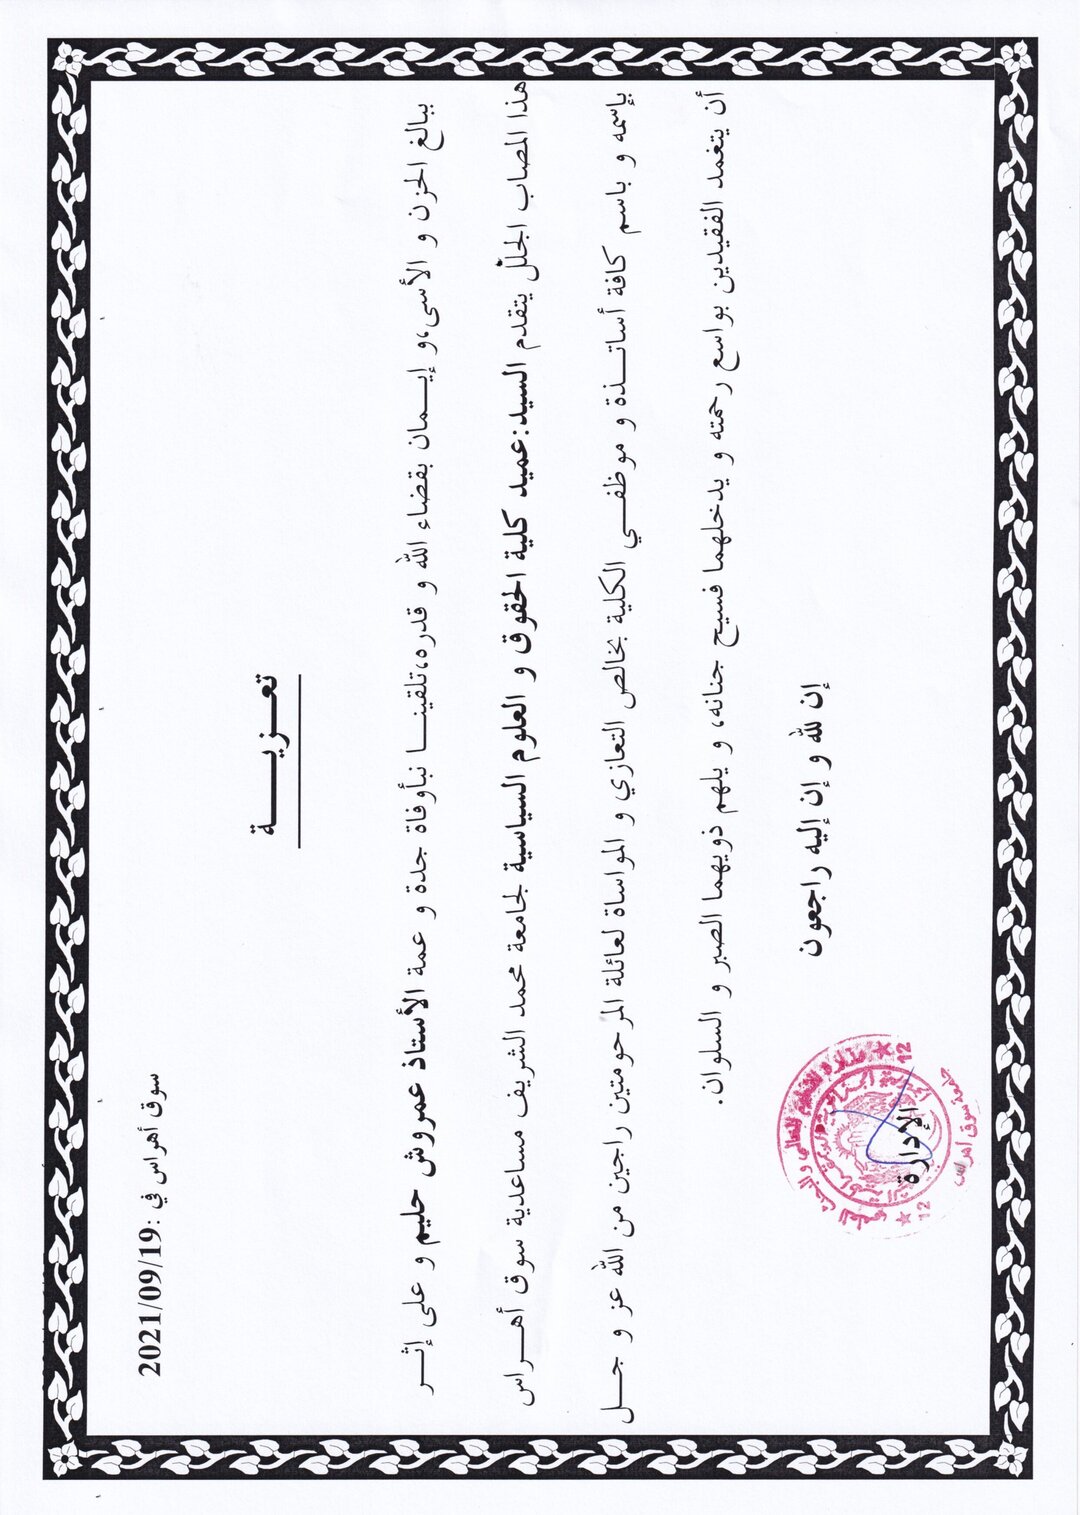 سوق أهراس في :2021/09/19
تعـزيـــة
ببالغ الحزن و الأسى،و إيـمان بقضاء الله و قدره،تلقينـا نبأوفاة جدة و عمة الأستاذ عمروش حليم و على إثـر
هذا المصاب الجلل يتقدم السيد:عميد كلية الحقوق و العلوم السياسية لجامعة محمد الشريف مساعدية سوق أهـراس
بإسمه و باسم كافة أساتـذة و موظفـي الكلية بخالص التعازي و المواساة لعائلة المرحومتين راجين من الله عز و جـل
أن يتغمد الفقيدين بواسع رحمته و يدخلهما فسيح جنانه، و يلهم ذويهما الصبر و السلوان.
إن لله و إن إليه راجعون
الإدارة
جامعة سوق أهراس
12
12